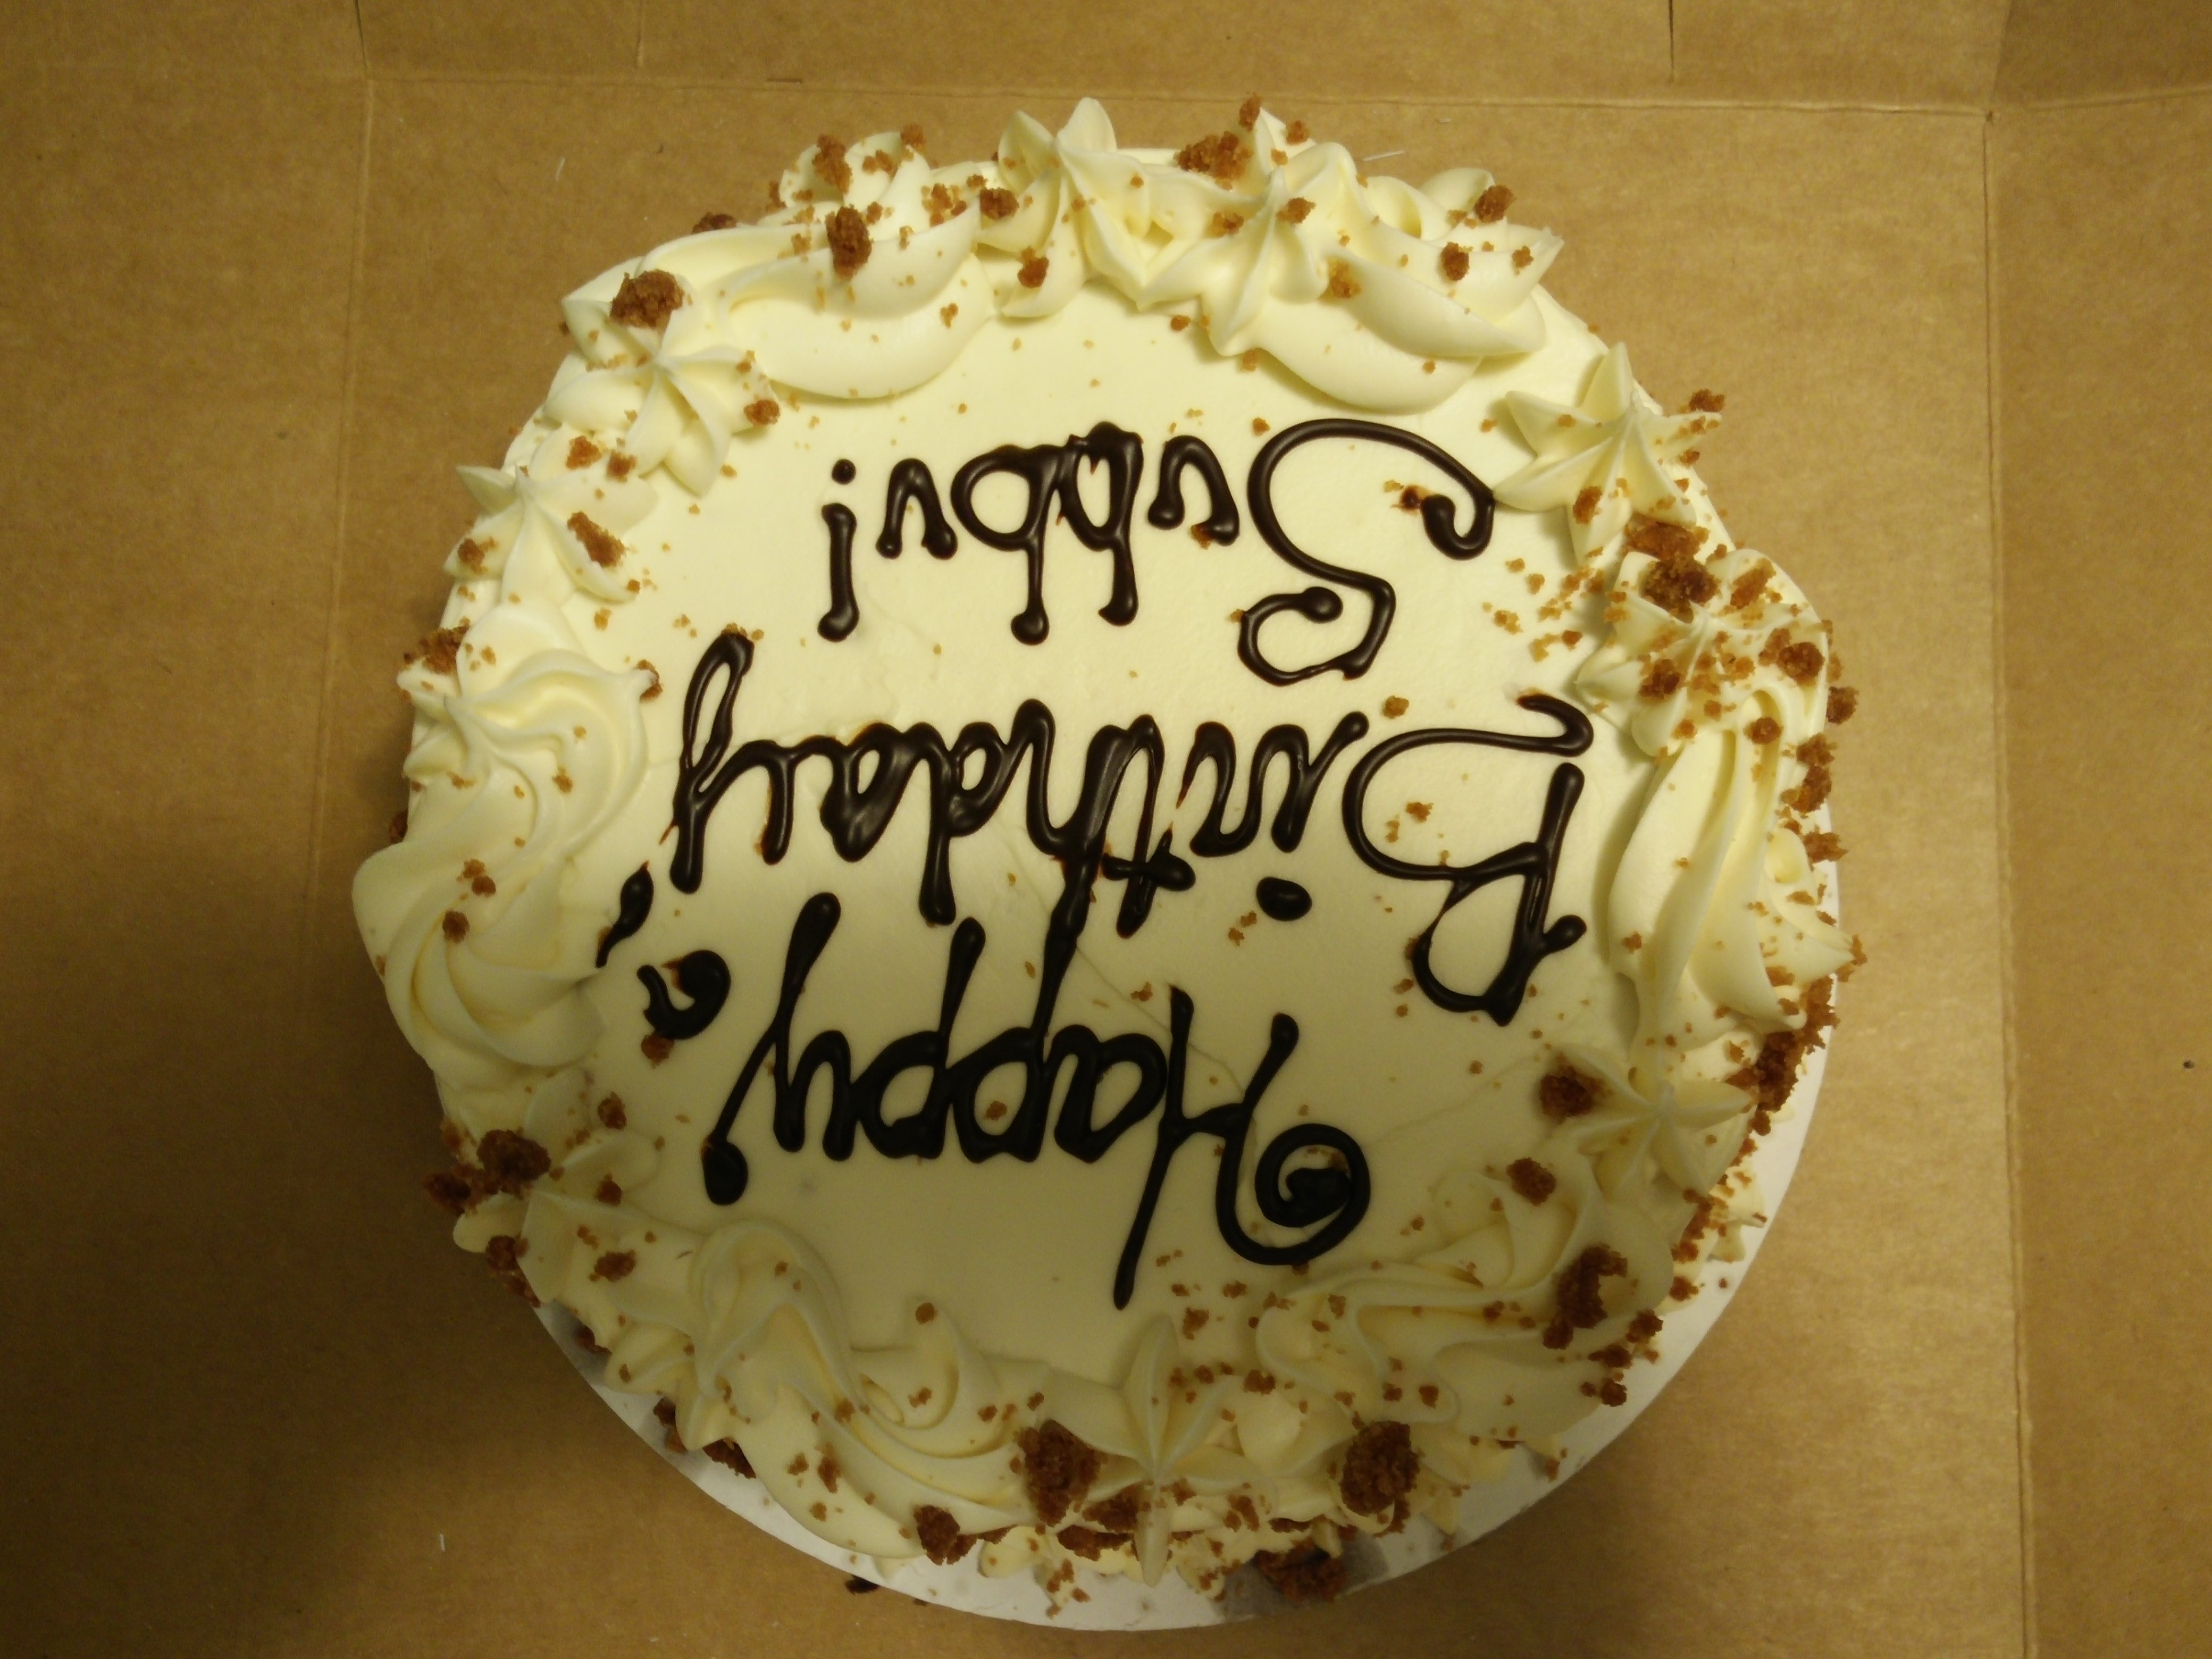 Happy
Birthday
Subbu!